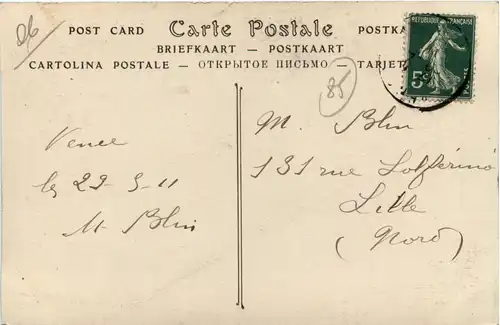 06
POST CARD Carte Postale POSTKA
BRIEFKAART — POSTKAART
CARTOLINA POSTALE — ОТКРЫТОЕ ПИСЬМО — TARJET
REPUBLIQUE FRANÇAISE
5c
POSTES
85
Vence
le 29-5-11
M. Blin
M. Blin
131 rue Solférino
Lille
(Nord)